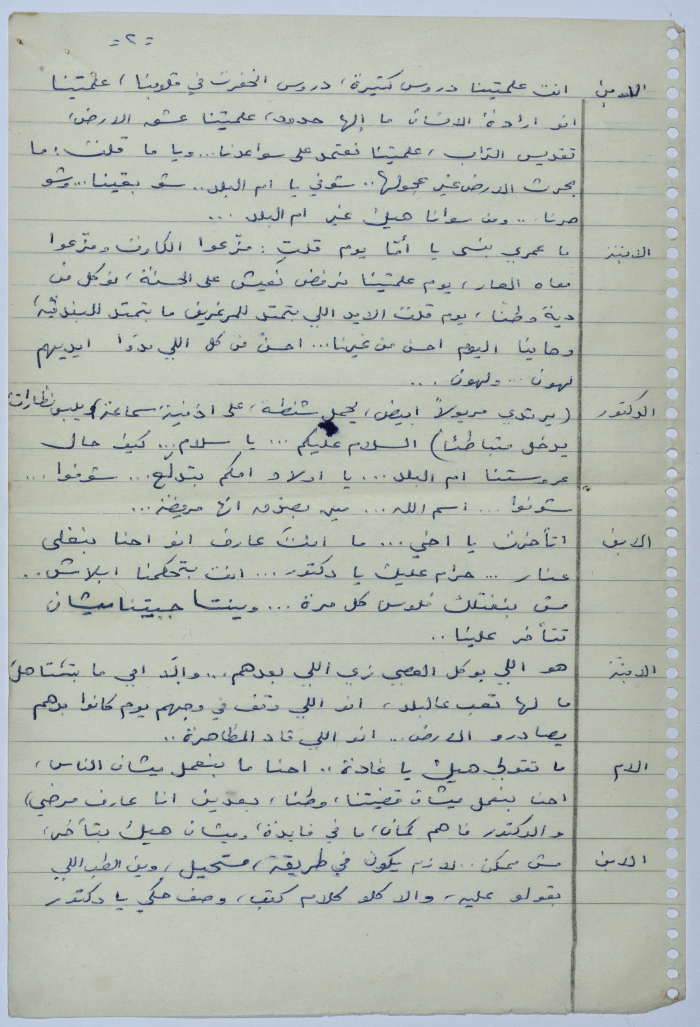 = ٢ =
الابن انت علمتينا دروس كتيرة، دروس انحفرت في قلوبنا، علمتينا
انو ارادة الانسان ما إلها حدود، علمتينا عشق الارض،
تقديس التراب، علمتينا نعتمد على سواعدنا... ويا ما قلت: ما
بحرث الارض غير عجولها.. شوفي يا ام البلد.. شو بقينا... وشو
صرنا... ومن سوانا هيك غير ام البلد ...
الابنة ما عمري بنسى يا أمّا يوم قلتِ: مزّعوا الكارت ومزّعوا
معاه العار، يوم علمتينا نرفض نعيش على الحسنة، نوكل من
دية وطنّا، يوم قلت الايد اللي بتمتد للمرغريف ما بتمتد للبندقية،
وهاينا اليوم احسن من غيرنا... احسن من كل اللي مدوا ايديهم
لهون... ولهون ...
الدكتور (يرتدي مريولاً ابيض، يحمل شنطة، على اذنية سماعة) ويلبس نظارات،
يدخل متباطئاً) السلام عليكم ... يا سلام... كيف حال
عروستنا ام البلد ... يا اولاد امكم بتدلّع... شوفوا ...
شوفوا ... اسم الله ... مين بصدق انها مريضة...
الابن اتأخرت يا اخي ... ما انتَ عارف انو احنا بنغلي
عنار ... حرام عليك يا دكتور ... انت بتحكمنا ابلاش ..
مش بنفتلك فلوس كل مرة ... وينتا جبيتنا ميشان
تتأخر علينا ..
الابنة هو اللي بوكل العصي زي اللي بعدهم ... والّا امي ما بتستاهل
ما لها تعب عالبلد، انو اللي وقف في وجهم يوم كانوا بدهم
يصادرو الارض.. انو اللي قاد المظاهرة ..
الام ما تقولي هيك يا غادة .. احنا ما بنعمل ميشان الناس،
احنا بنعمل ميشان قضيتنا، وطنا، بعدين انا عارف مرضي)
والدكتور فاهم كمان، ما في فايدة، وميشان هيك بتأخر،
الابن مش ممكن.. لازم يكون في طريقة، مستحيل، وين الطب اللي
بقولو عليه، والا كلو كلام كتب، وصف حكي يا دكتور